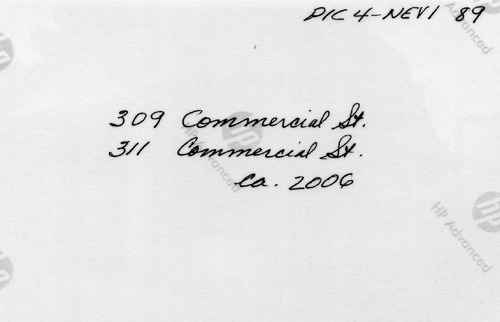 PIC 4-NEV1 89
309 Commercial St.
311 Commercial St.
ca. 2006
HP Advanced
HP Advanced
HP Advanced